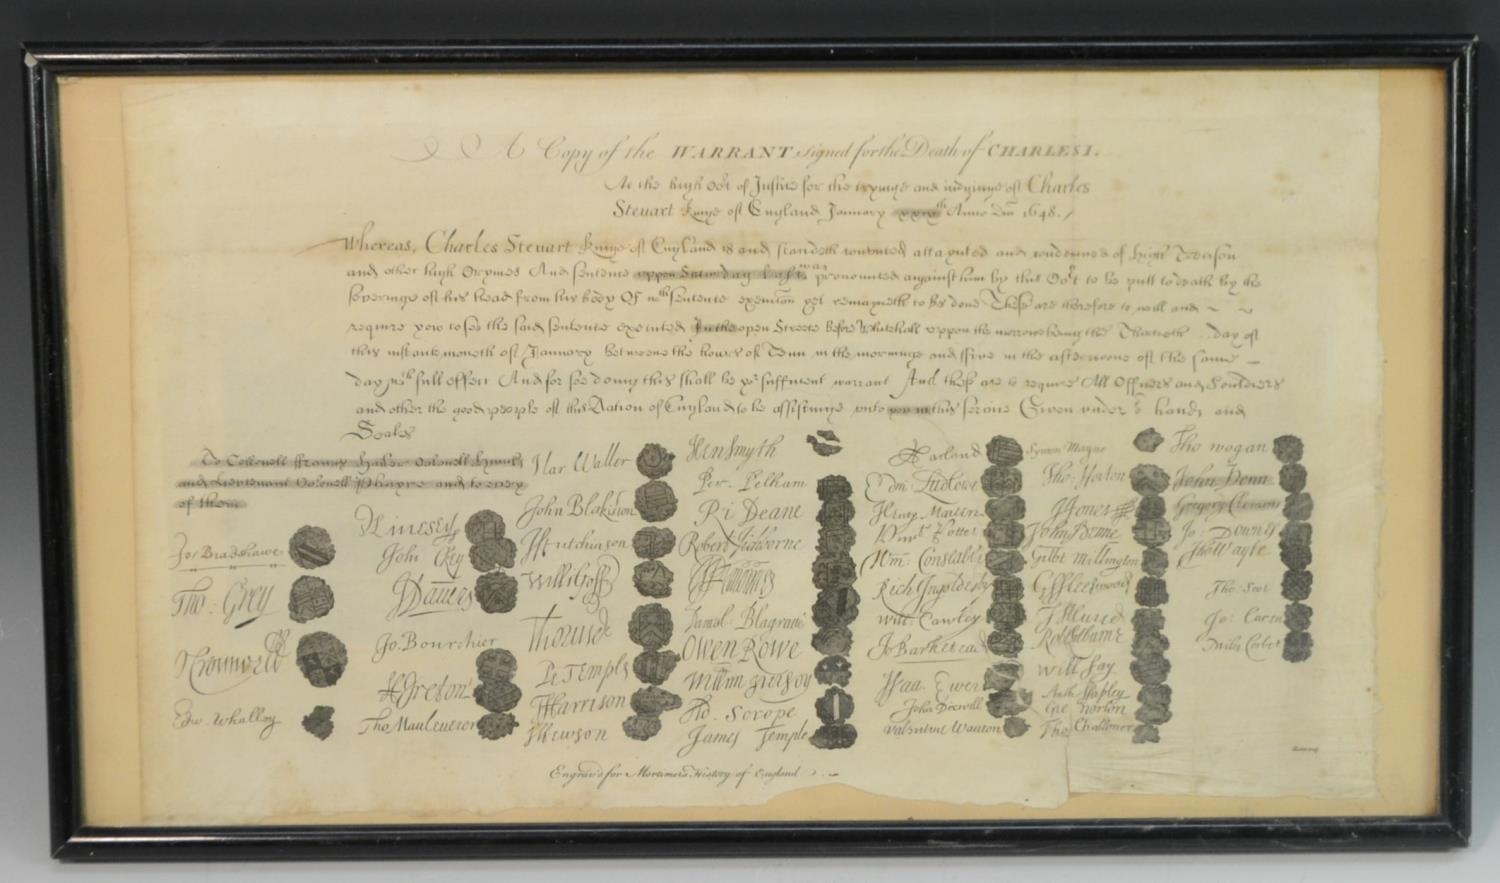 A Copy of the WARRANT signed for the Death of CHARLES I.
At the high Cot of Justice for the tryinge and iudginge of Charles
Steuart Kinge of England January xxixth Anno Dm 1648.
Whereas, Charles Steuart Kinge of England is and standeth convicted attaynted and condemned of high Treason
and other high Crymes And sentence uppon Saturday last was pronounced against him by this Cort to be putt to death by the
severinge of his head from his body Of wch sentence execucon yet remayneth to be done These are therefore to will and
require you to see the said sentence executed In the open Streete before Whitehall uppon the morrowe being the Thirtieth day of
this instante moneth of January betweene the houres of Tenn in the morninge and ffive in the afternoone of the same
day wth full effect And for soe doing this shall be yor sufficient warrant And these are to require All Officers and Souldiers
and other the good people of this Nation of England to be assistinge unto you in this service Given under hands and
Seales
To Collonell ffrancis Hacker Colonell Huncks
and Lieutenant Colonell Phayre and to every
of them
Jo Bradshawe
Tho: Grey
O Cromwell
Edw Whalley
M Livesey
John Okey
J Davers
Jo Bourchier
H Ireton
Tho Mauleverer
Har Waller
John Blakiston
J Hutchinson
Willi Goff
Tho Pride
Pe Temple
T Harrison
J Hewson
Hen Smyth
Per. Pelham
Ri Deane
Robert Tichborne
H Edwardes
Daniel Blagrave
Owen Rowe
Willm Purfoy
Ad Scrope
James Temple
A Garland
Edm: Ludlowe
Henry Marten
Vinct Potter
Wm: Constable
Rich Ingoldesby
Will: Cawley
Jo Barkestead
Isaa Ewer
John Dixwell
Valentine Wauton
Symon Mayne
Tho: Horton
J Jones
John Penne
Gilbt Millington
G Fleetwood
J Alured
Rob Lilburne
Will Say
Anth Stapley
Gre Norton
Tho Challoner
Tho Wogan
John Venn
Gregory Clement
Jo: Downes
Tho Wayte
Tho: Scot
Jo: Carew
Miles Corbet
Engrav'd for Mortimers History of England